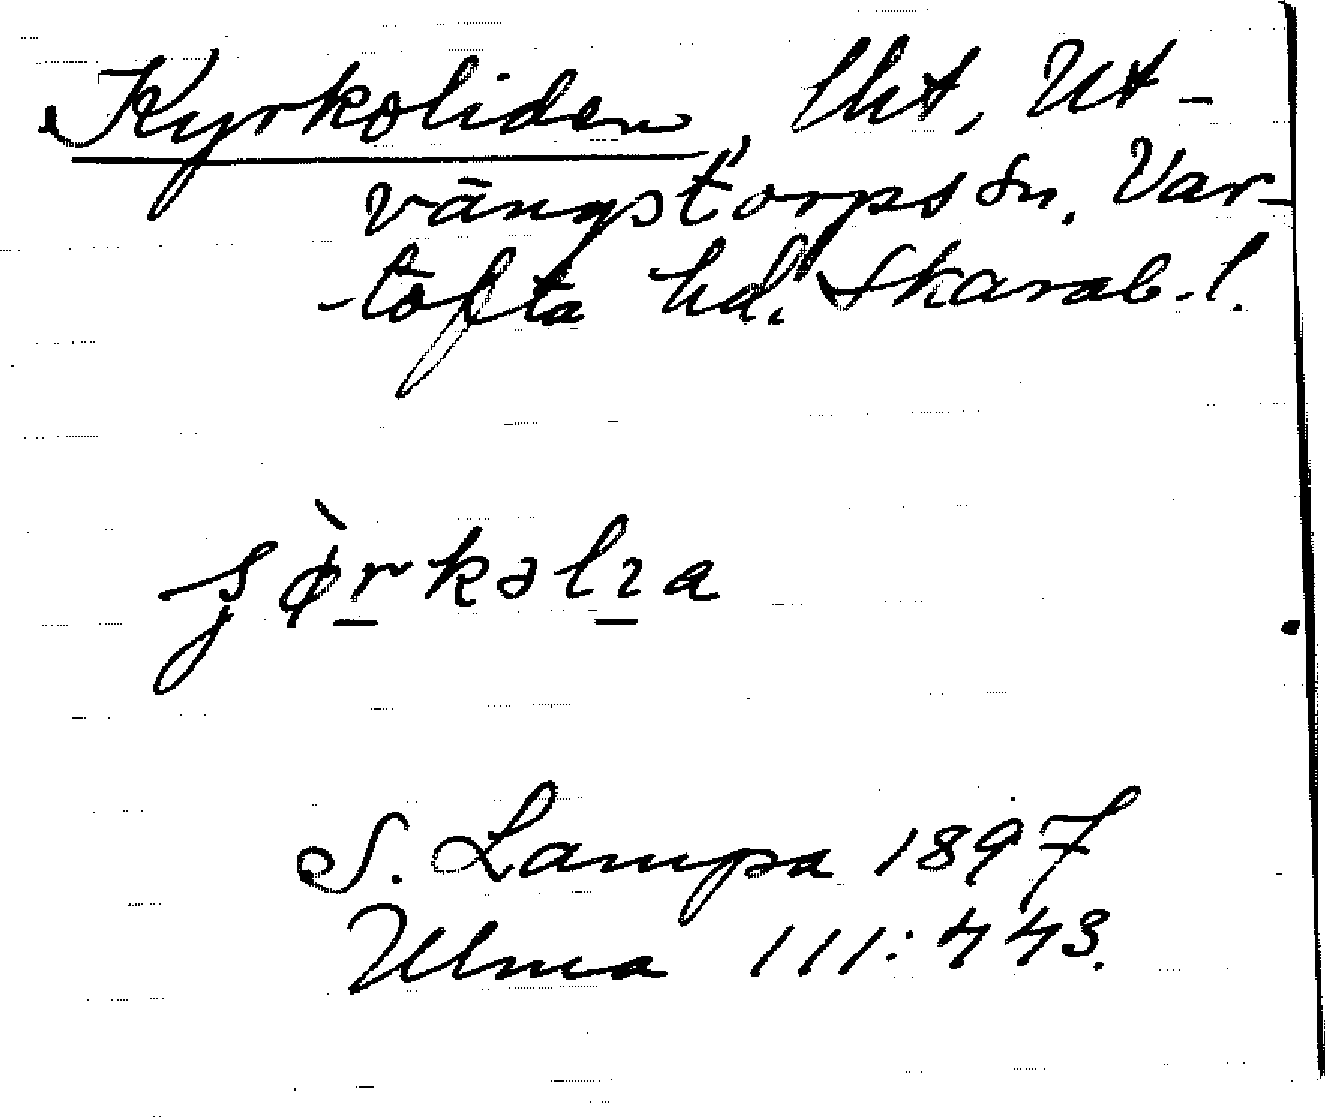 Kyrkoliden, lht, Ut-
vängstorps sn. Var-
tofta hd. Skarab. l.
S. Lampa 1897
Ulma 111:443.